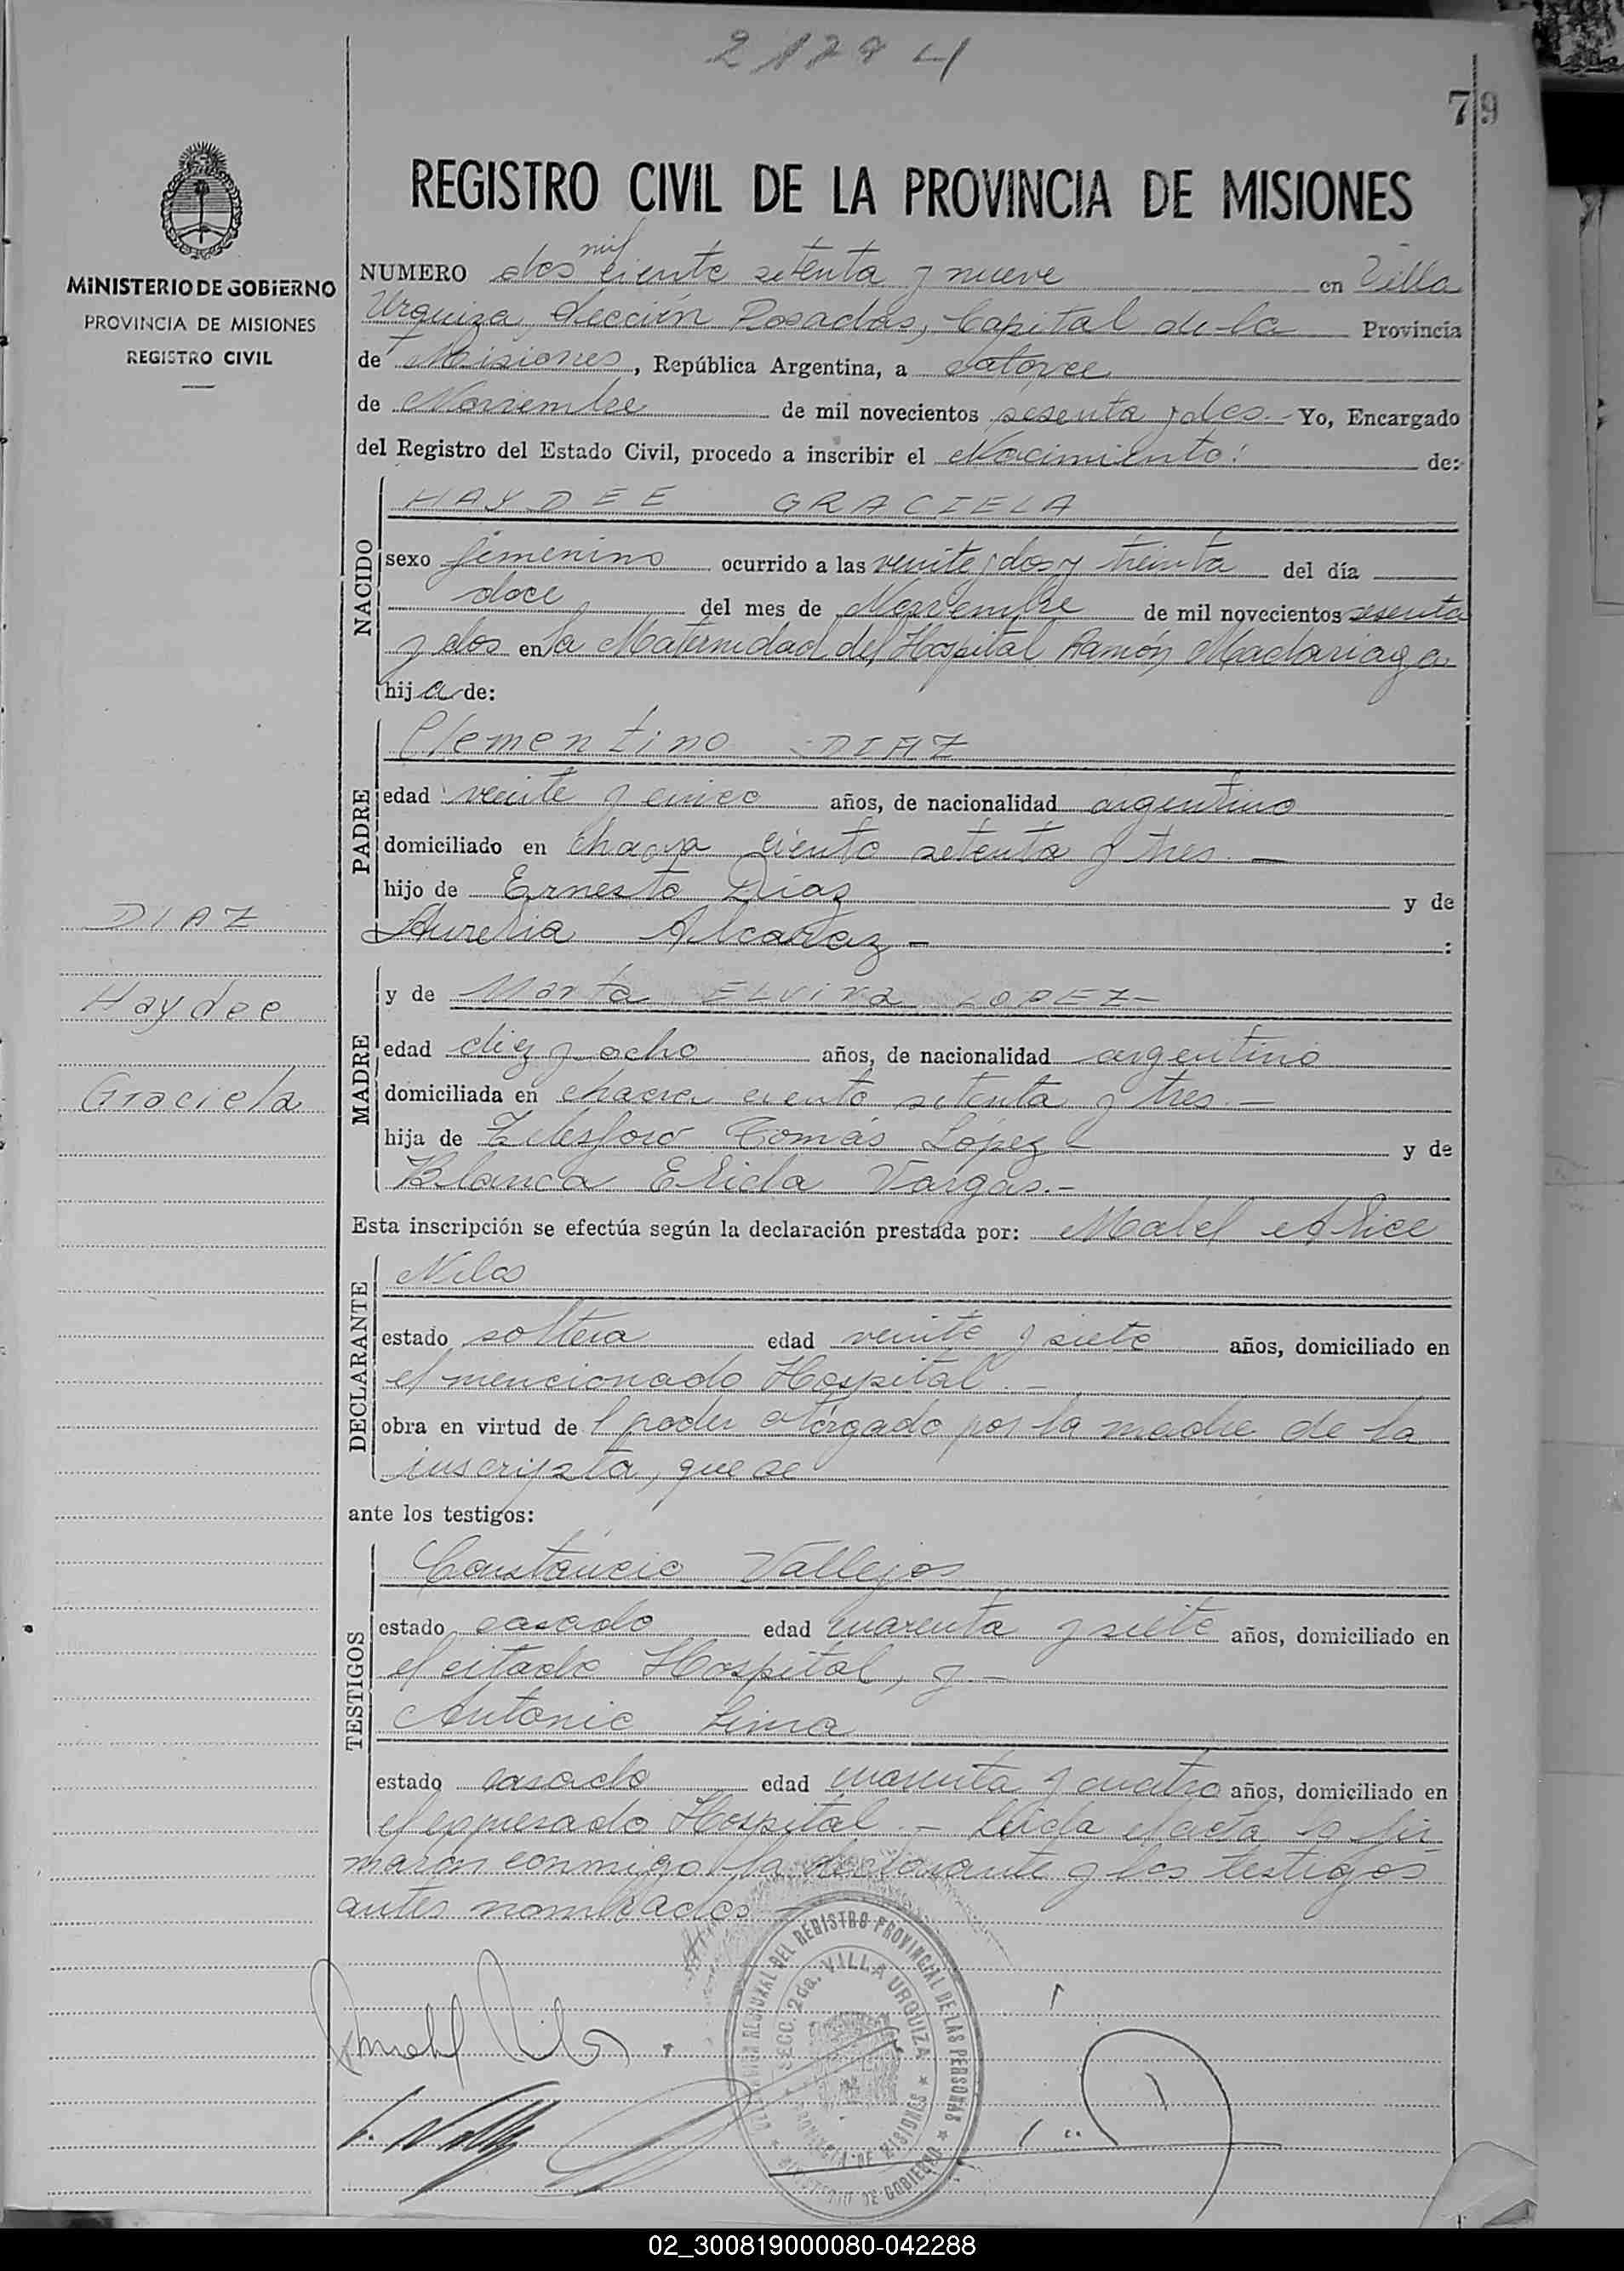 79
REGISTRO CIVIL DE LA PROVINCIA DE MISIONES
MINISTERIO DE GOBIERNO
PROVINCIA DE MISIONES
REGISTRO CIVIL
NUMERO dos mil ciento setenta y nueve en Villa
Urquiza, Sección Posadas, Capital de la Provincia
de Misiones, República Argentina, a catorce
de Noviembre de mil novecientos sesenta y dos.- Yo, Encargado
del Registro del Estado Civil, procedo a inscribir el Nacimiento: de:
NACIDO
HAYDEE GRACIELA
sexo femenino ocurrido a las veinte y dos y treinta del día
doce del mes de Noviembre de mil novecientos sesenta
y dos en la Maternidad del Hospital Ramón Madariaga
hija de:
PADRE
Clementino DIAZ
edad veinte y cinco años, de nacionalidad argentino
domiciliado en chacra ciento setenta y tres.-
hijo de Ernesto Díaz y de
Aurelia Alcaraz - :
DIAZ
Haydee
Graciela
MADRE
y de Marta ELVIRA LOPEZ-
edad diez y ocho años, de nacionalidad argentina
domiciliada en chacra ciento setenta y tres.-
hija de Telesforo Tomás López - y de
Blanca Elida Vargas.-
Esta inscripción se efectúa según la declaración prestada por: Mabel Alice
DECLARANTE
Nilos
estado soltera edad veinte y siete años, domiciliado en
el mencionado Hospital.-
obra en virtud de l poder otorgado por la madre de la
inscripta, que se
ante los testigos:
TESTIGOS
Constancio Vallejos
estado casado edad cuarenta y siete años, domiciliado en
el citado Hospital, y -
Antonio Lima
estado casado edad cuarenta y cuatro años, domiciliado en
el expresado Hospital.- Leída el acta la fir
maron conmigo la declarante y los testigos
antes nombrados
DEL REGISTRO PROVINCIAL DE LAS PERSONAS
SECC. 2da. VILLA URQUIZA
PROVINCIA DE MISIONES
MINISTERIO DE GOBIERNO
02_300819000080-042288